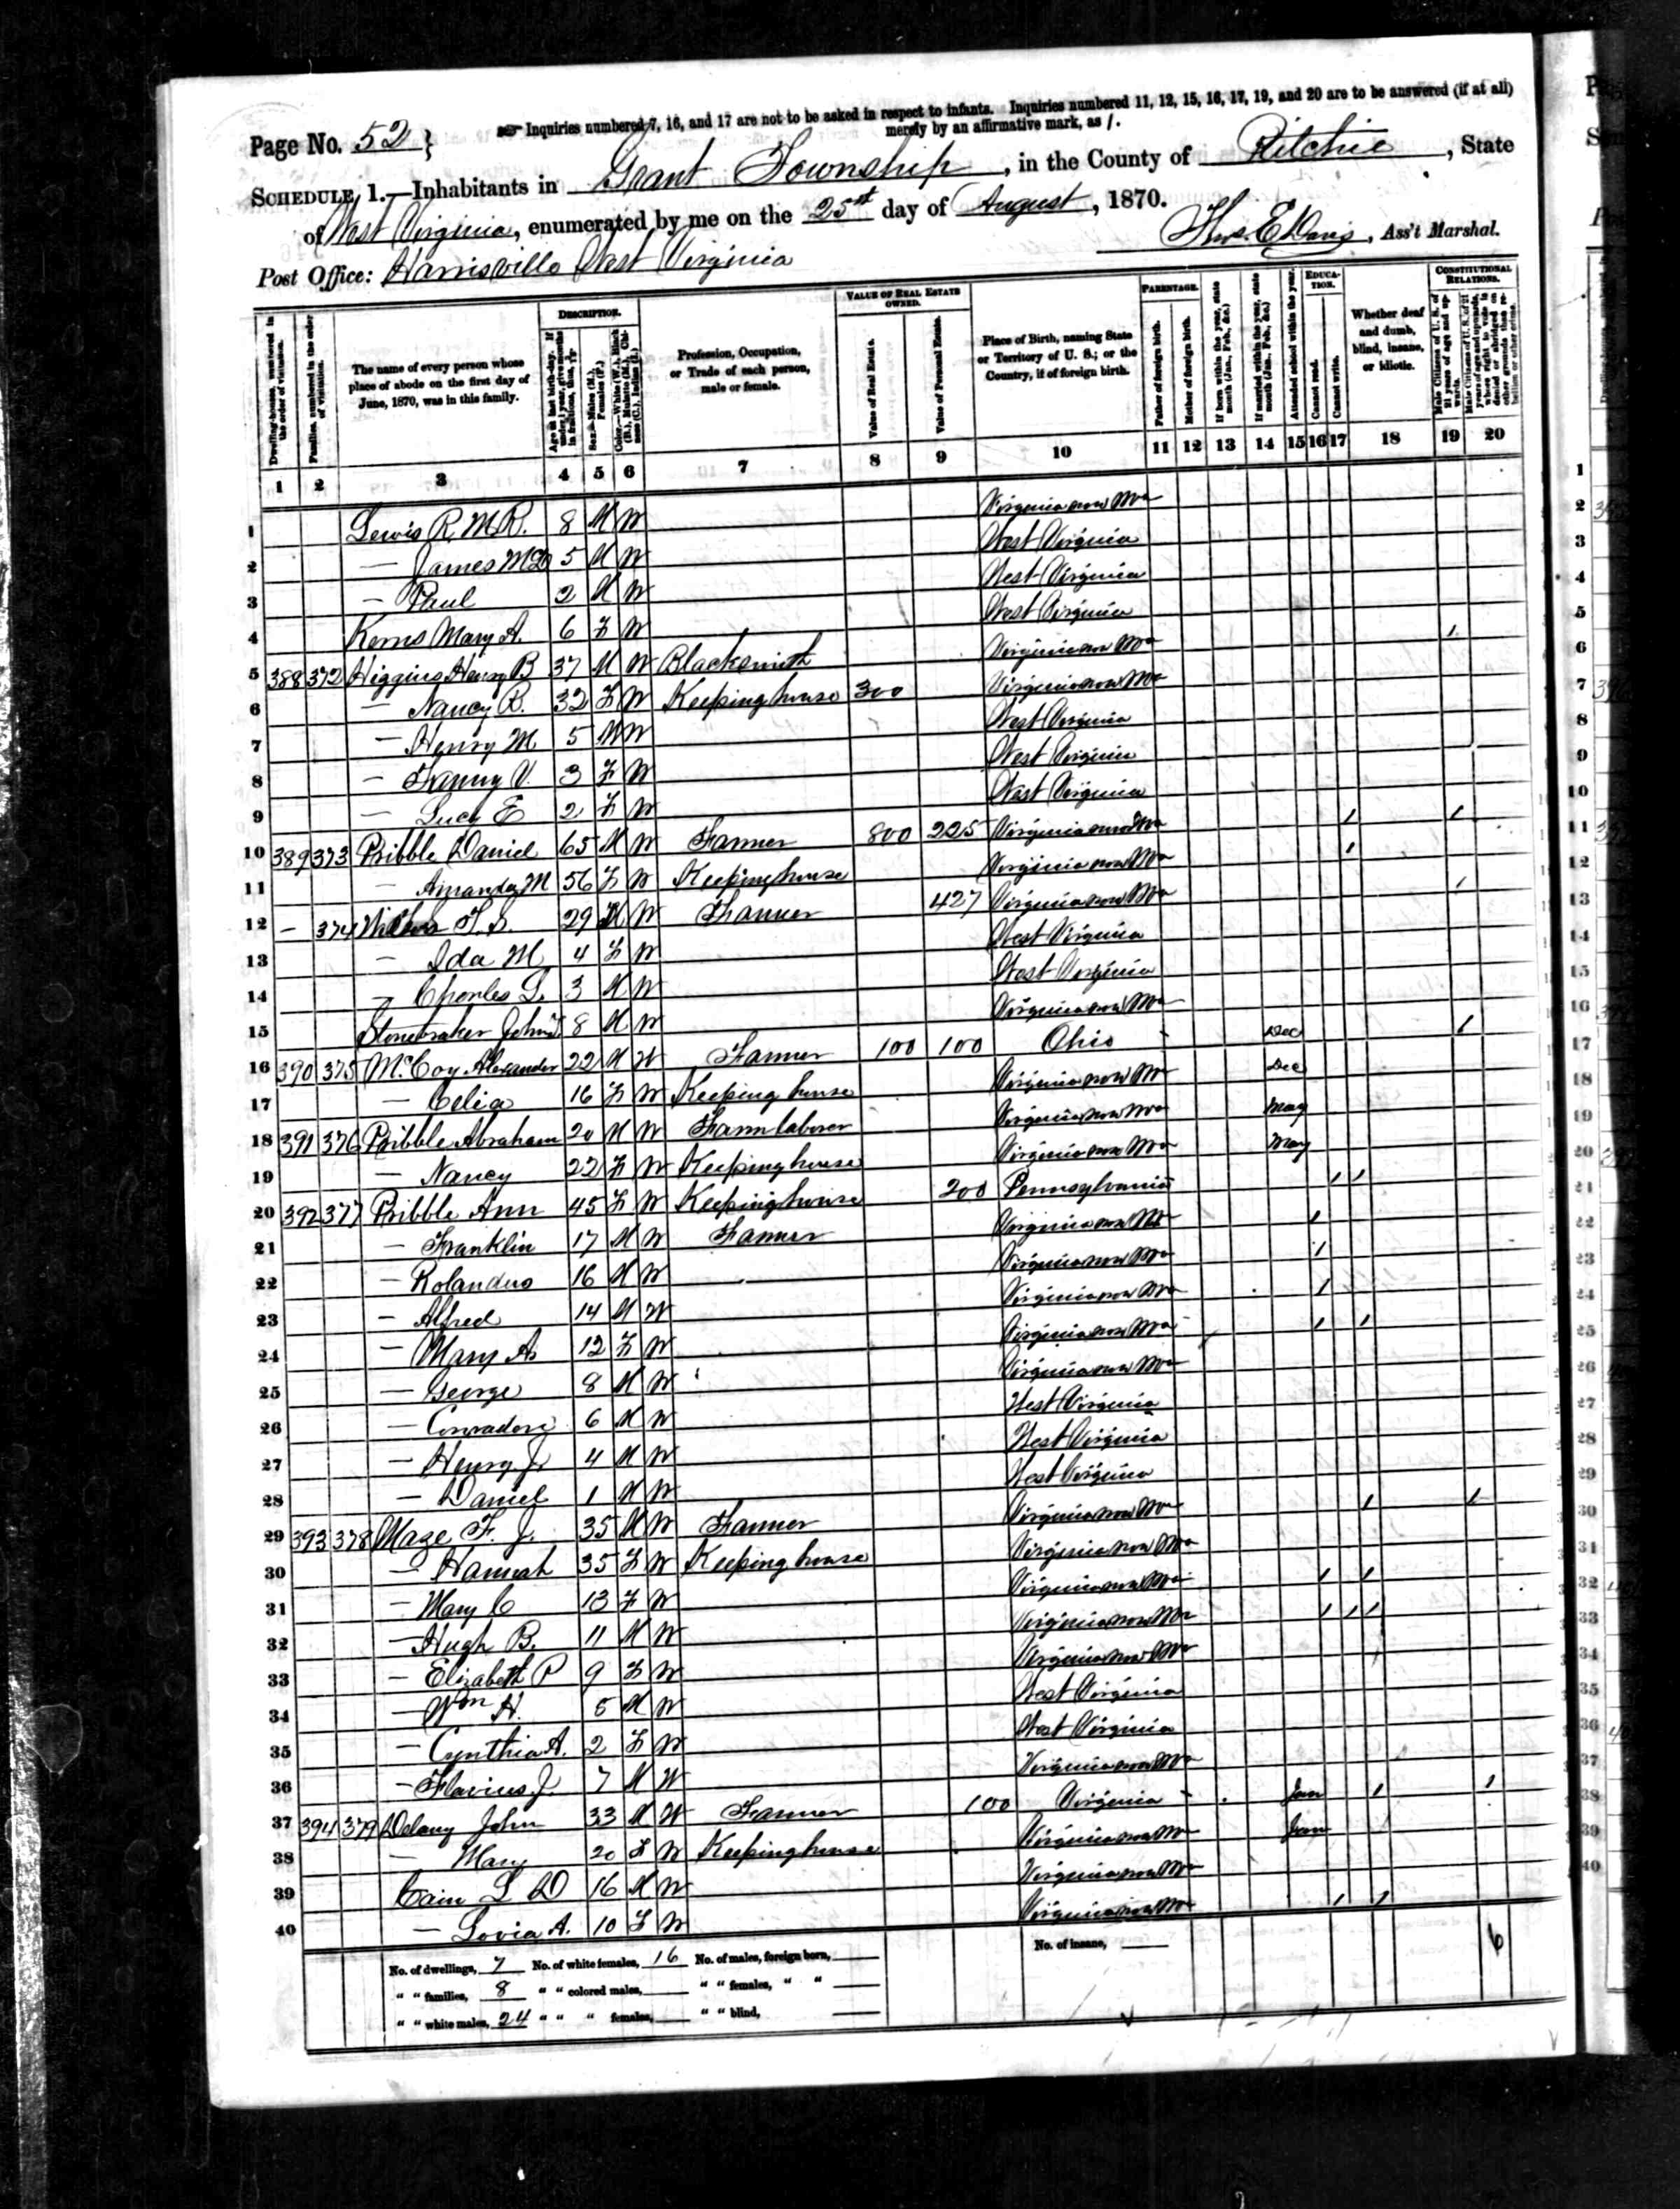 Page No. 52 } Inquiries numbered 7, 16, and 17 are not to be asked in respect to infants. Inquiries numbered 11, 12, 15, 16, 17, 19, and 20 are to be answered (if at all)
merely by an affirmative mark, as /.
SCHEDULE 1.—Inhabitants in Grant Township, in the County of Ritchie, State
of West Virginia, enumerated by me on the 25st day of August, 1870.
Post Office: Harrisville West Virginia
E Davis, Ass't Marshal.
Dwelling-houses, numbered in the order of visitation.
Families, numbered in the order of visitation.
The name of every person whose place of abode on the first day of June, 1870, was in this family.
DESCRIPTION.
Age at last birth-day. If under 1 year, give months in fractions, thus,
Sex.—Males (M.), Females (F.)
Color.—White (W.), Black (B.), Mulatto (M.), Chinese (C.), Indian (I.)
Profession, Occupation, or Trade of each person, male or female.
VALUE OF REAL ESTATE OWNED.
Value of Real Estate.
Value of Personal Estate.
Place of Birth, naming State or Territory of U. S.; or the Country, if of foreign birth.
PARENTAGE.
Father of foreign birth.
Mother of foreign birth.
If born within the year, state month (Jan., Feb., &c.)
If married within the year, state month (Jan., Feb., &c.)
Attended school within the year.
EDUCATION.
Cannot read.
Cannot write.
Whether deaf and dumb, blind, insane, or idiotic.
CONSTITUTIONAL RELATIONS.
Male Citizens of U. S. of 21 years of age and upwards.
Male Citizens of U. S. of 21 years of age and upwards, whose right to vote is denied or abridged on other grounds than rebellion or other crime.
1 2 3 4 5 6 7 8 9 10 11 12 13 14 15 16 17 18 19 20
1 Lewis R. M. R. 8 M W Virginia now Wva
2 — James McD 5 M W West Virginia
3 — Paul 2 M W West Virginia
4 Kerns Mary A. 6 F W West Virginia
5 388 372 Higgins Henry B 37 M W Blacksmith Virginia now Wva /
6 — Nancy R. 32 F W Keeping house 300 Virginia now Wva
7 — Henry M 5 M W West Virginia
8 — Fanny V. 3 F W West Virginia
9 — Lucy E 2 F W West Virginia
10 389 373 Pribble Daniel 65 M W Farmer 800 225 Virginia now Wva / /
11 — Amanda M 56 F W Keeping house Virginia now Wva /
12 — 374 29 M W Farmer 427 Virginia now Wva /
13 — Ida M 4 F W West Virginia
14 — Charles L. 3 M W West Virginia
15 Stonebraker John 8 M W Virginia now Wva
16 390 375 McCoy Alexander 22 M W Farmer 100 100 Ohio Dec /
17 — Celia 16 F W Keeping house Virginia now Wva Dec
18 391 376 Pribble Abraham 20 M W Farm laborer Virginia now Wva May
19 — Nancy 22 F W Keeping house Virginia now Wva May
20 392 377 Pribble Ann 45 F W Keeping house 200 Pennsylvania / /
21 — Franklin 17 M W Farmer Virginia now Wva /
22 — Rolandus 16 M W Virginia now Wva /
23 — Alfred 14 M W Virginia now Wva /
24 — Mary A 12 F W Virginia now Wva / /
25 — George 8 M W Virginia now Wva
26 — 6 M W West Virginia
27 — Henry J. 4 M W West Virginia
28 — Daniel 1 M W West Virginia
29 393 378 Maze F. J. 35 M W Farmer Virginia now Wva / /
30 — Hannah 35 F W Keeping house Virginia now Wva
31 — Mary C 13 F W Virginia now Wva / /
32 — Hugh B. 11 M W Virginia now Wva / / /
33 — Elizabeth P 9 F W Virginia now Wva
34 — Wm H. 5 M W West Virginia
35 — Cynthia A. 2 F W West Virginia
36 — Flavius J. 7 M W Virginia now Wva
37 394 379 Delany John 33 M W Farmer 100 Virginia Jan / /
38 — Mary 20 F W Keeping house Virginia now Wva Jan
39 Cain L D 16 M W Virginia now Wva
40 — Lovia A. 10 F W Virginia now Wva / /
No. of dwellings, 7 No. of white females, 16 No. of males, foreign born, No. of insane, 6
" " families, 8 " " colored males, " " females, " "
" " white males, 24 " " " females, " " blind,